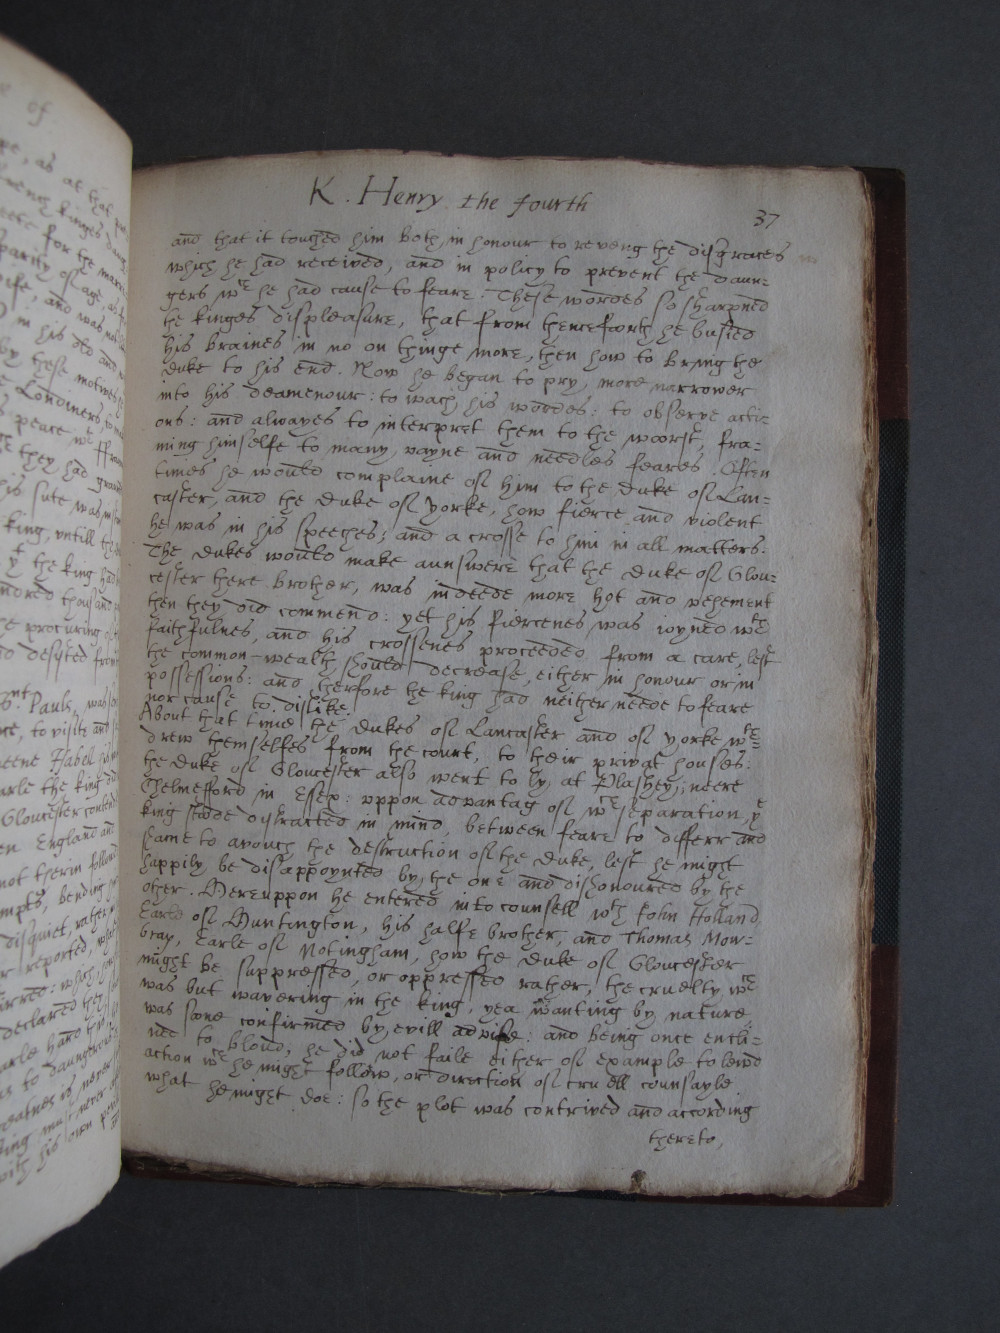 K. Henry the fourth
37
and that it touched him both, in honour to reveng the disgraces
which he had received, and in policy to prevent the daun-
gers wch he had cause to feare. These wordes so sharpned
the kinges displeasure, that from thenceforth he busied
his braines in no on thinge more, then how to bring the
duke to his end. Now he began to pry, more narrower
into his deamenour: to wach his woordes: to observe acti-
ons: and alwayes to interpret them to the woorst, fra-
ming himselfe to many vayne and needles feares. Often
times he would complaine of him to the duke of Lan-
caster, and the duke of yorke, how fierce and violent
he was in his speeches; and a crosse to him in all matters.
The dukes would make aunswere that the duke of Glou-
cester there brother, was indeede more hot and vehement
then they did commend: yet his fiercenes was ioyned wth
faithfulnes, and his crossenes proceeded from a care, lest
the common-wealth should decrease, either in honour or in
possessions: and therfore the king had neither neede to feare
nor cause to dislike.
About that time the dukes of Lancaster and of yorke wth-
drew themselfes from the court, to their privat houses:
the duke of Gloucester also went to ly, at Plashey, neere
Chelmefford in Essex: vppon advantag of wch separation, ye
king stoode distracted in mind, between feare to differr and
shame to avouch the destruction of the duke, lest he might
happily be disappoynted by the one and dishonoured by the
other. Hereuppon he entered into counsell wth John Holland
Earle of Huntington, his halfe brother, and Thomas Mow-
bray, Earle of Notingham, how the duke of Gloucester
might be suppressed, or oppressed rather, the cruelty wch
was but wavering in the king, yea wanting by nature
was sone confirmed by evill advise: and being once entli-
ned to bloud, he did not faile either of example to lewd
action wch he might follow, or direction of cruell counsayle
what he might doe: so the plot was contrived and according
thereto,